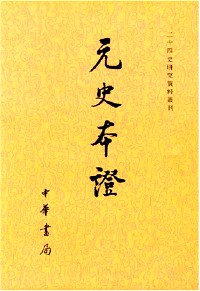 二十四史研究資料叢刊
元史本證
中華書局